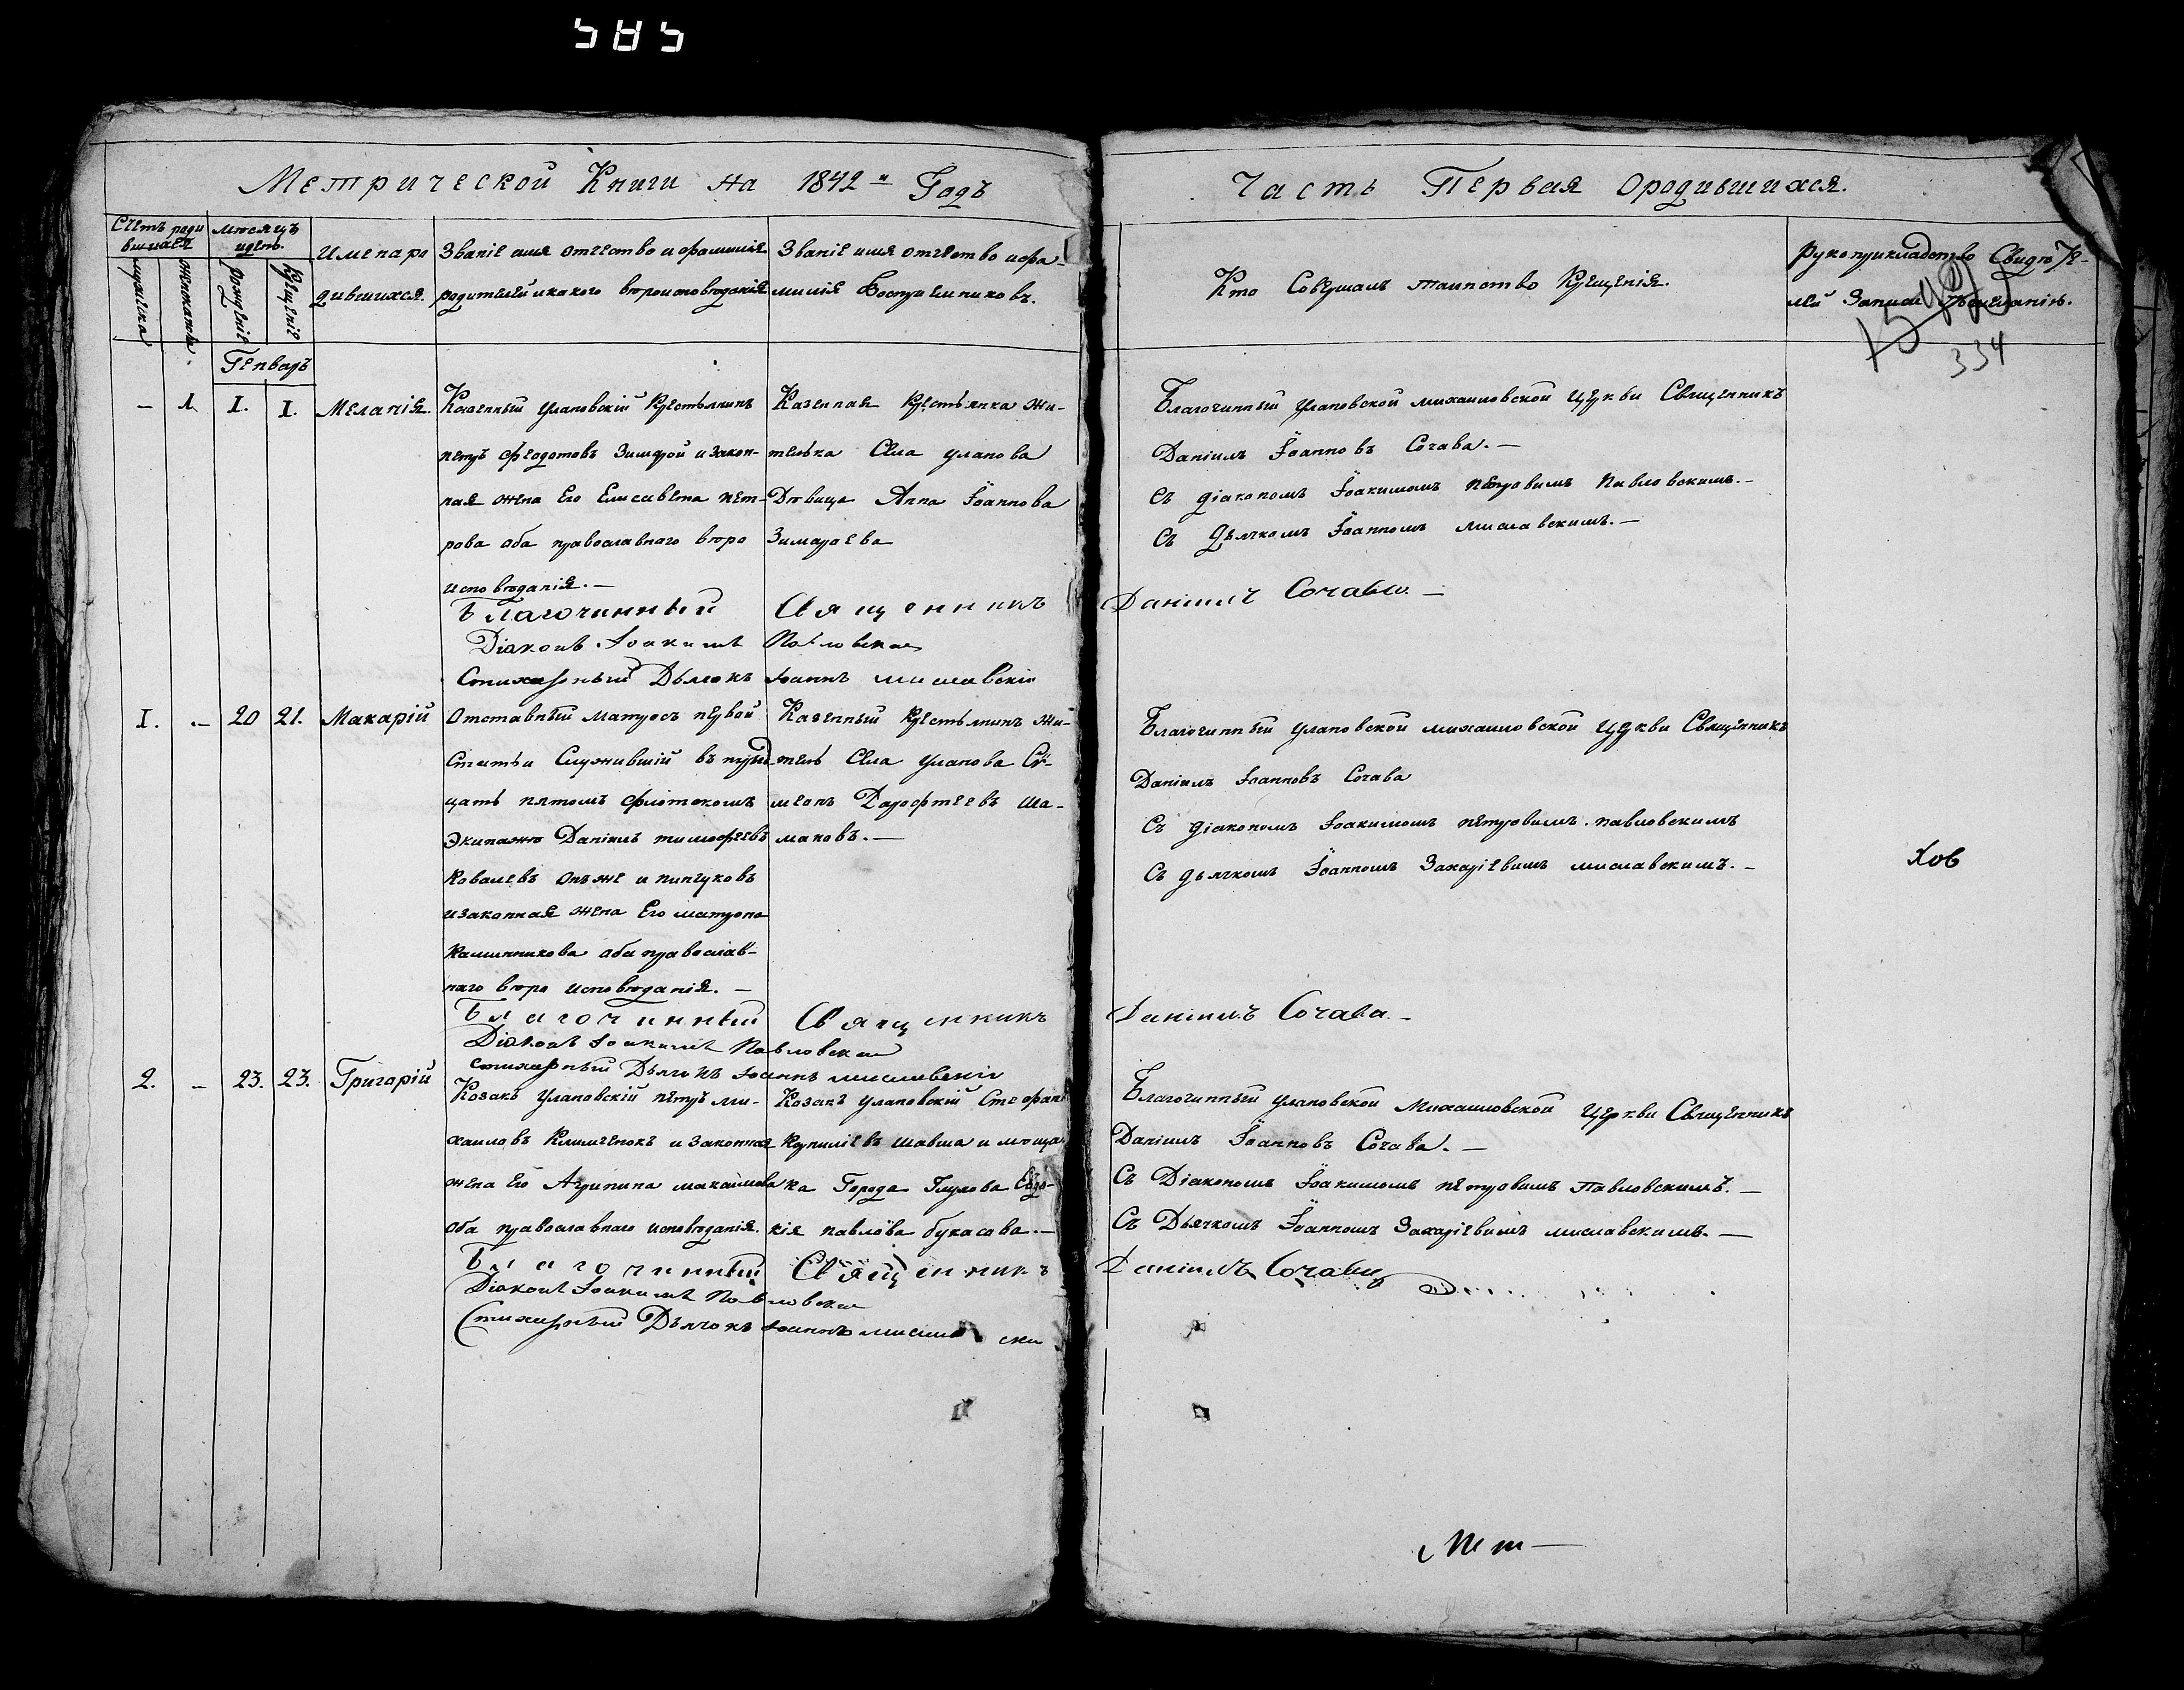 585
Метрической Книги на 1842 Годъ
Часть Первая Ородившихся.
Счетъ роди
вшихся
мужеска
женска
месяцъ
идень.
рожденіе
крещеніе
Имена ро
дившихся.
Званіе имя отчество ифамилія
родителей икакого вероисповеданія
Званіе имя отчество ифа-
милія Воспріемниковъ.
Кто Совершалъ таинство Крещенія.
рукоприкладство Свидете-
лей Записи
334
Генварь
– 1. I. I. Меланія.
Казенный улановскій Крестьянинъ
петръ феодотовъ изакон-
ная жена Его Елисавета пет-
рова оба православнаго веро
исповеданія. –
Казенная Крестьянка жи-
телька Села уланова
Девица Анна Іоаннова
Благочинный улановской михаиловской церкви Священникъ
Даніилъ Іоанновъ Сочава. –
Съ діакономъ Іоакимомъ петровимъ Павловскимъ. –
Съ Дьячкомъ Іоанномъ миславскимъ. –
Благочинный Священникъ Даніилъ Сочава –
Діаконъ Іоакимъ Павловски
Стихарный Дьячокъ Іоаннъ миславскій
I. – 20 21. Макарій
Отставный матросъ первой
Статьи Служившій въ трид
цать пятомъ флотскомъ
Экипаже Даніилъ тимофеевъ
Ковалевъ онъже и пинчуковъ
изаконная жена Его матрона
Калинникова оба православ-
наго веро исповеданія. –
Казенный Крестьянинъ жи-
тель Села Уланова Си-
меонъ Дорофтеевъ
маковъ. –
Благочинный улановской михаиловской церкви Священникъ
Даніилъ Іоанновъ Сочава
Съ діакономъ Іоакимомъ петровимъ павловскимъ
Съ дьячкомъ Іоанномъ Захаріевимъ миславскимъ. –
Хов
Благочинный Священникъ Даніилъ Сочава –
Діаконъ Іоакимъ Павловски
стихарный Дьячокъ Іоаннъ миславскій
2. – 23. 23. Григорій
Козакъ Улановскій петръ ми-
хаиловъ Клименокъ и законная
жена Его Агрипина
оба православнаго исповеданія.
Козакъ улановскій Стефанъ
Корниліевъ Шавша и мещан
ка Города Глухова Евдо-
кія павлова букасова. –
Благочинный улановской Михаиловской церкви Священникъ
Даніилъ Іоанновъ Сочава. –
Съ Діакономъ Іоакимомъ петровимъ павловскимъ. –
Съ Дьячкомъ Іоанномъ Захаріевимъ миславскимъ. –
Благочинный Священникъ Даніилъ Сочава
Діаконъ Іоакимъ Павловски
Стихарный Дьячокъ Іоаннъ
Мет –